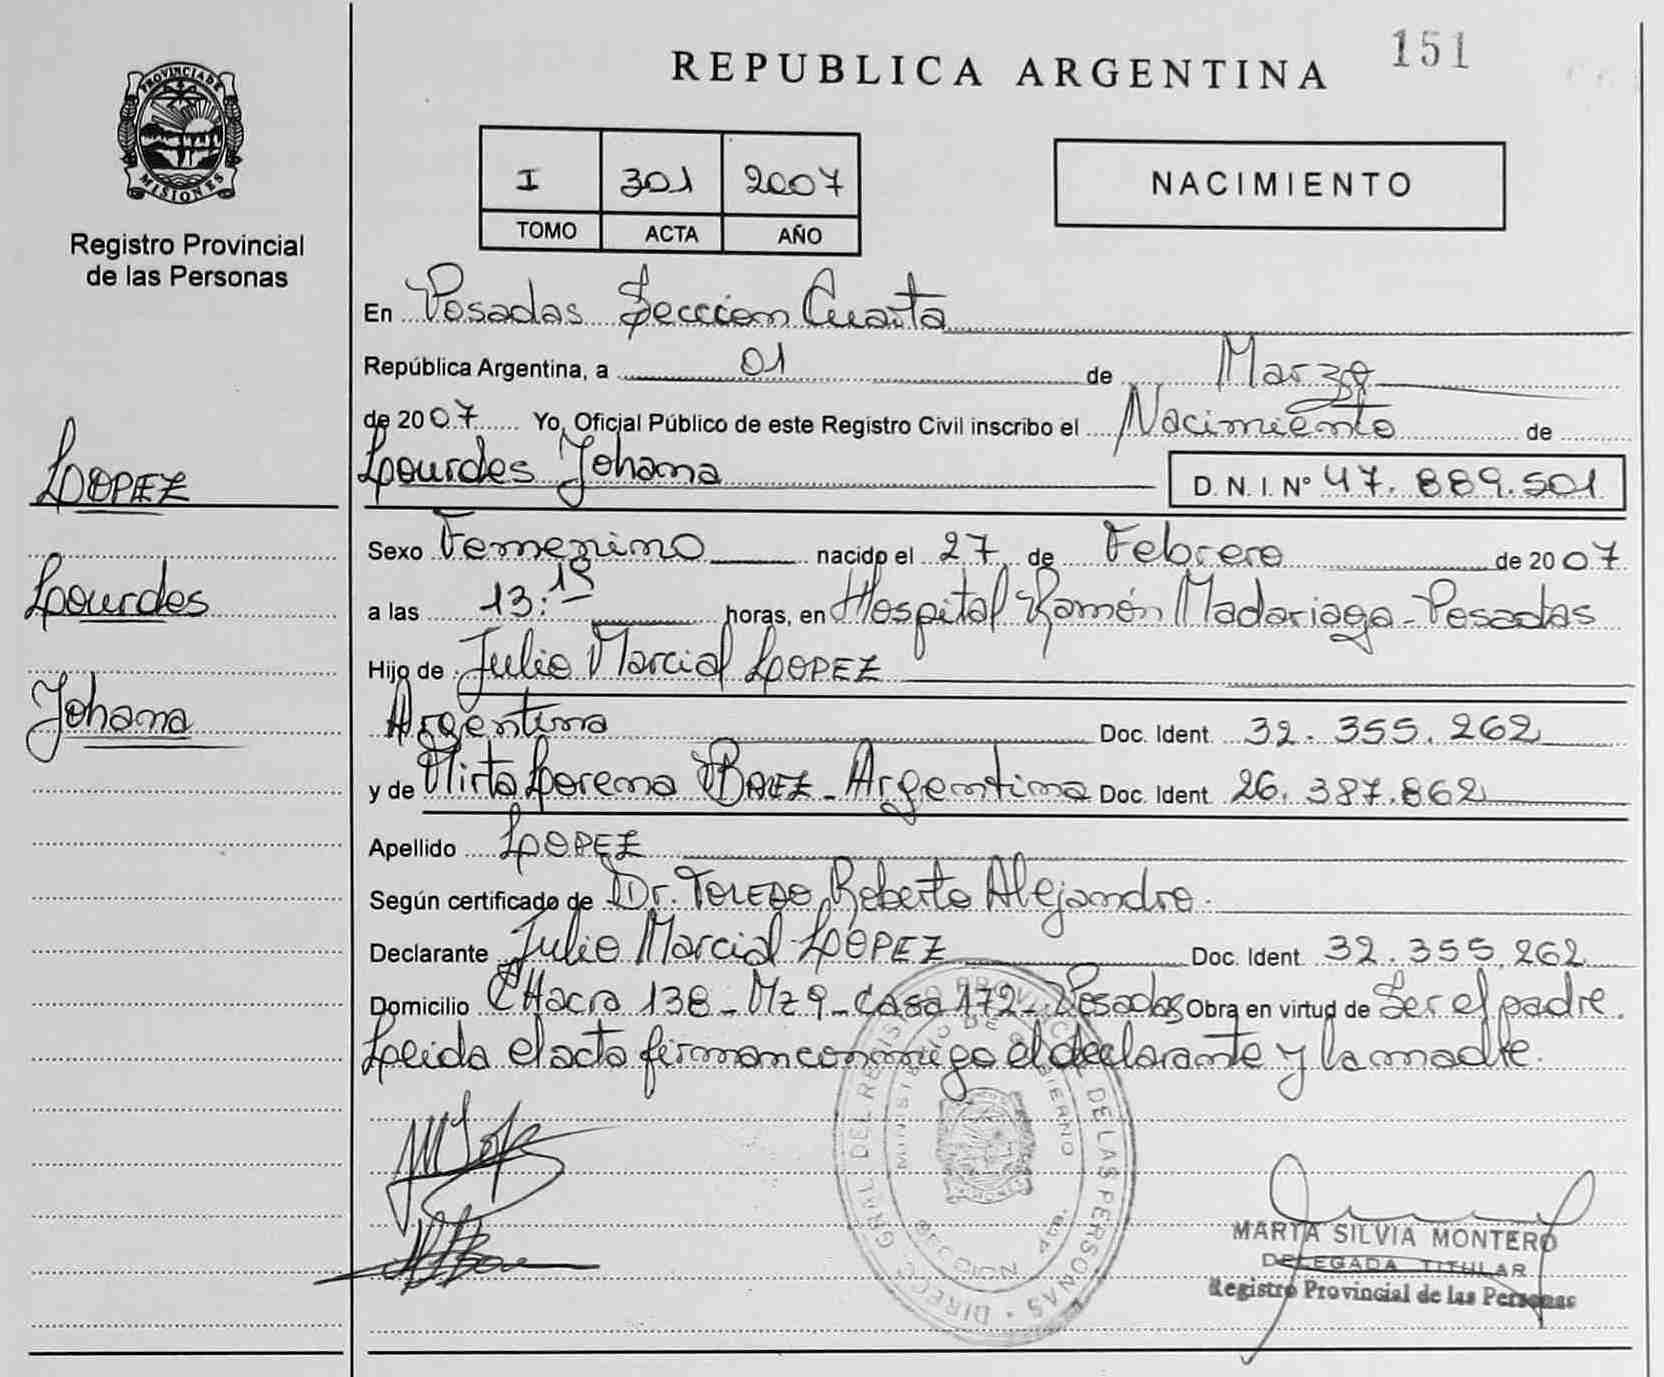 151
REPUBLICA ARGENTINA
PROVINCIA DE
MISIONES
Registro Provincial
de las Personas
I 301 2007
TOMO ACTA AÑO
NACIMIENTO
En Posadas Seccion Cuarta
República Argentina, a 01 de Marzo
de 2007 Yo, Oficial Público de este Registro Civil inscribo el Nacimiento de
Lourdes Johana D. N. I. Nº 47.889.501
LOPEZ
Lourdes
Johana
Sexo Femenino nacido el 27 de Febrero de 2007
a las 13:15 horas, en Hospital Ramón Madariaga - Posadas
Hijo de Julio Marcial LOPEZ
Argentina Doc. Ident. 32.355.262
y de Mirta Lorena BAEZ - Argentina Doc. Ident. 26.387.862
Apellido LOPEZ
Según certificado de Dr. TOLEDO Roberto Alejandro.
Declarante Julio Marcial LÓPEZ Doc. Ident. 32.355.262
Domicilio CHacra 138 - Mz 9 - Casa 172 - Posadas Obra en virtud de Ser el padre.
Leida el acta firman conmigo el declarante y la madre.
DIRECC. GRAL. DEL REGISTRO PROVINCIAL DE LAS PERSONAS
MINISTERIO DE GOBIERNO
SECCION 4ta.
MARTA SILVIA MONTERO
DELEGADA TITULAR
Registro Provincial de las Personas